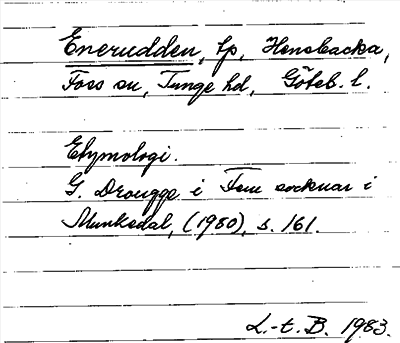 Enerudden, tp, Hensbacka,
Foss sn, Tunge hd, Göteb. l.
Etymologi.
G. Drougge i Fem socknar i
Munkedal, (1980), s. 161.
L.-t. B. 1983.